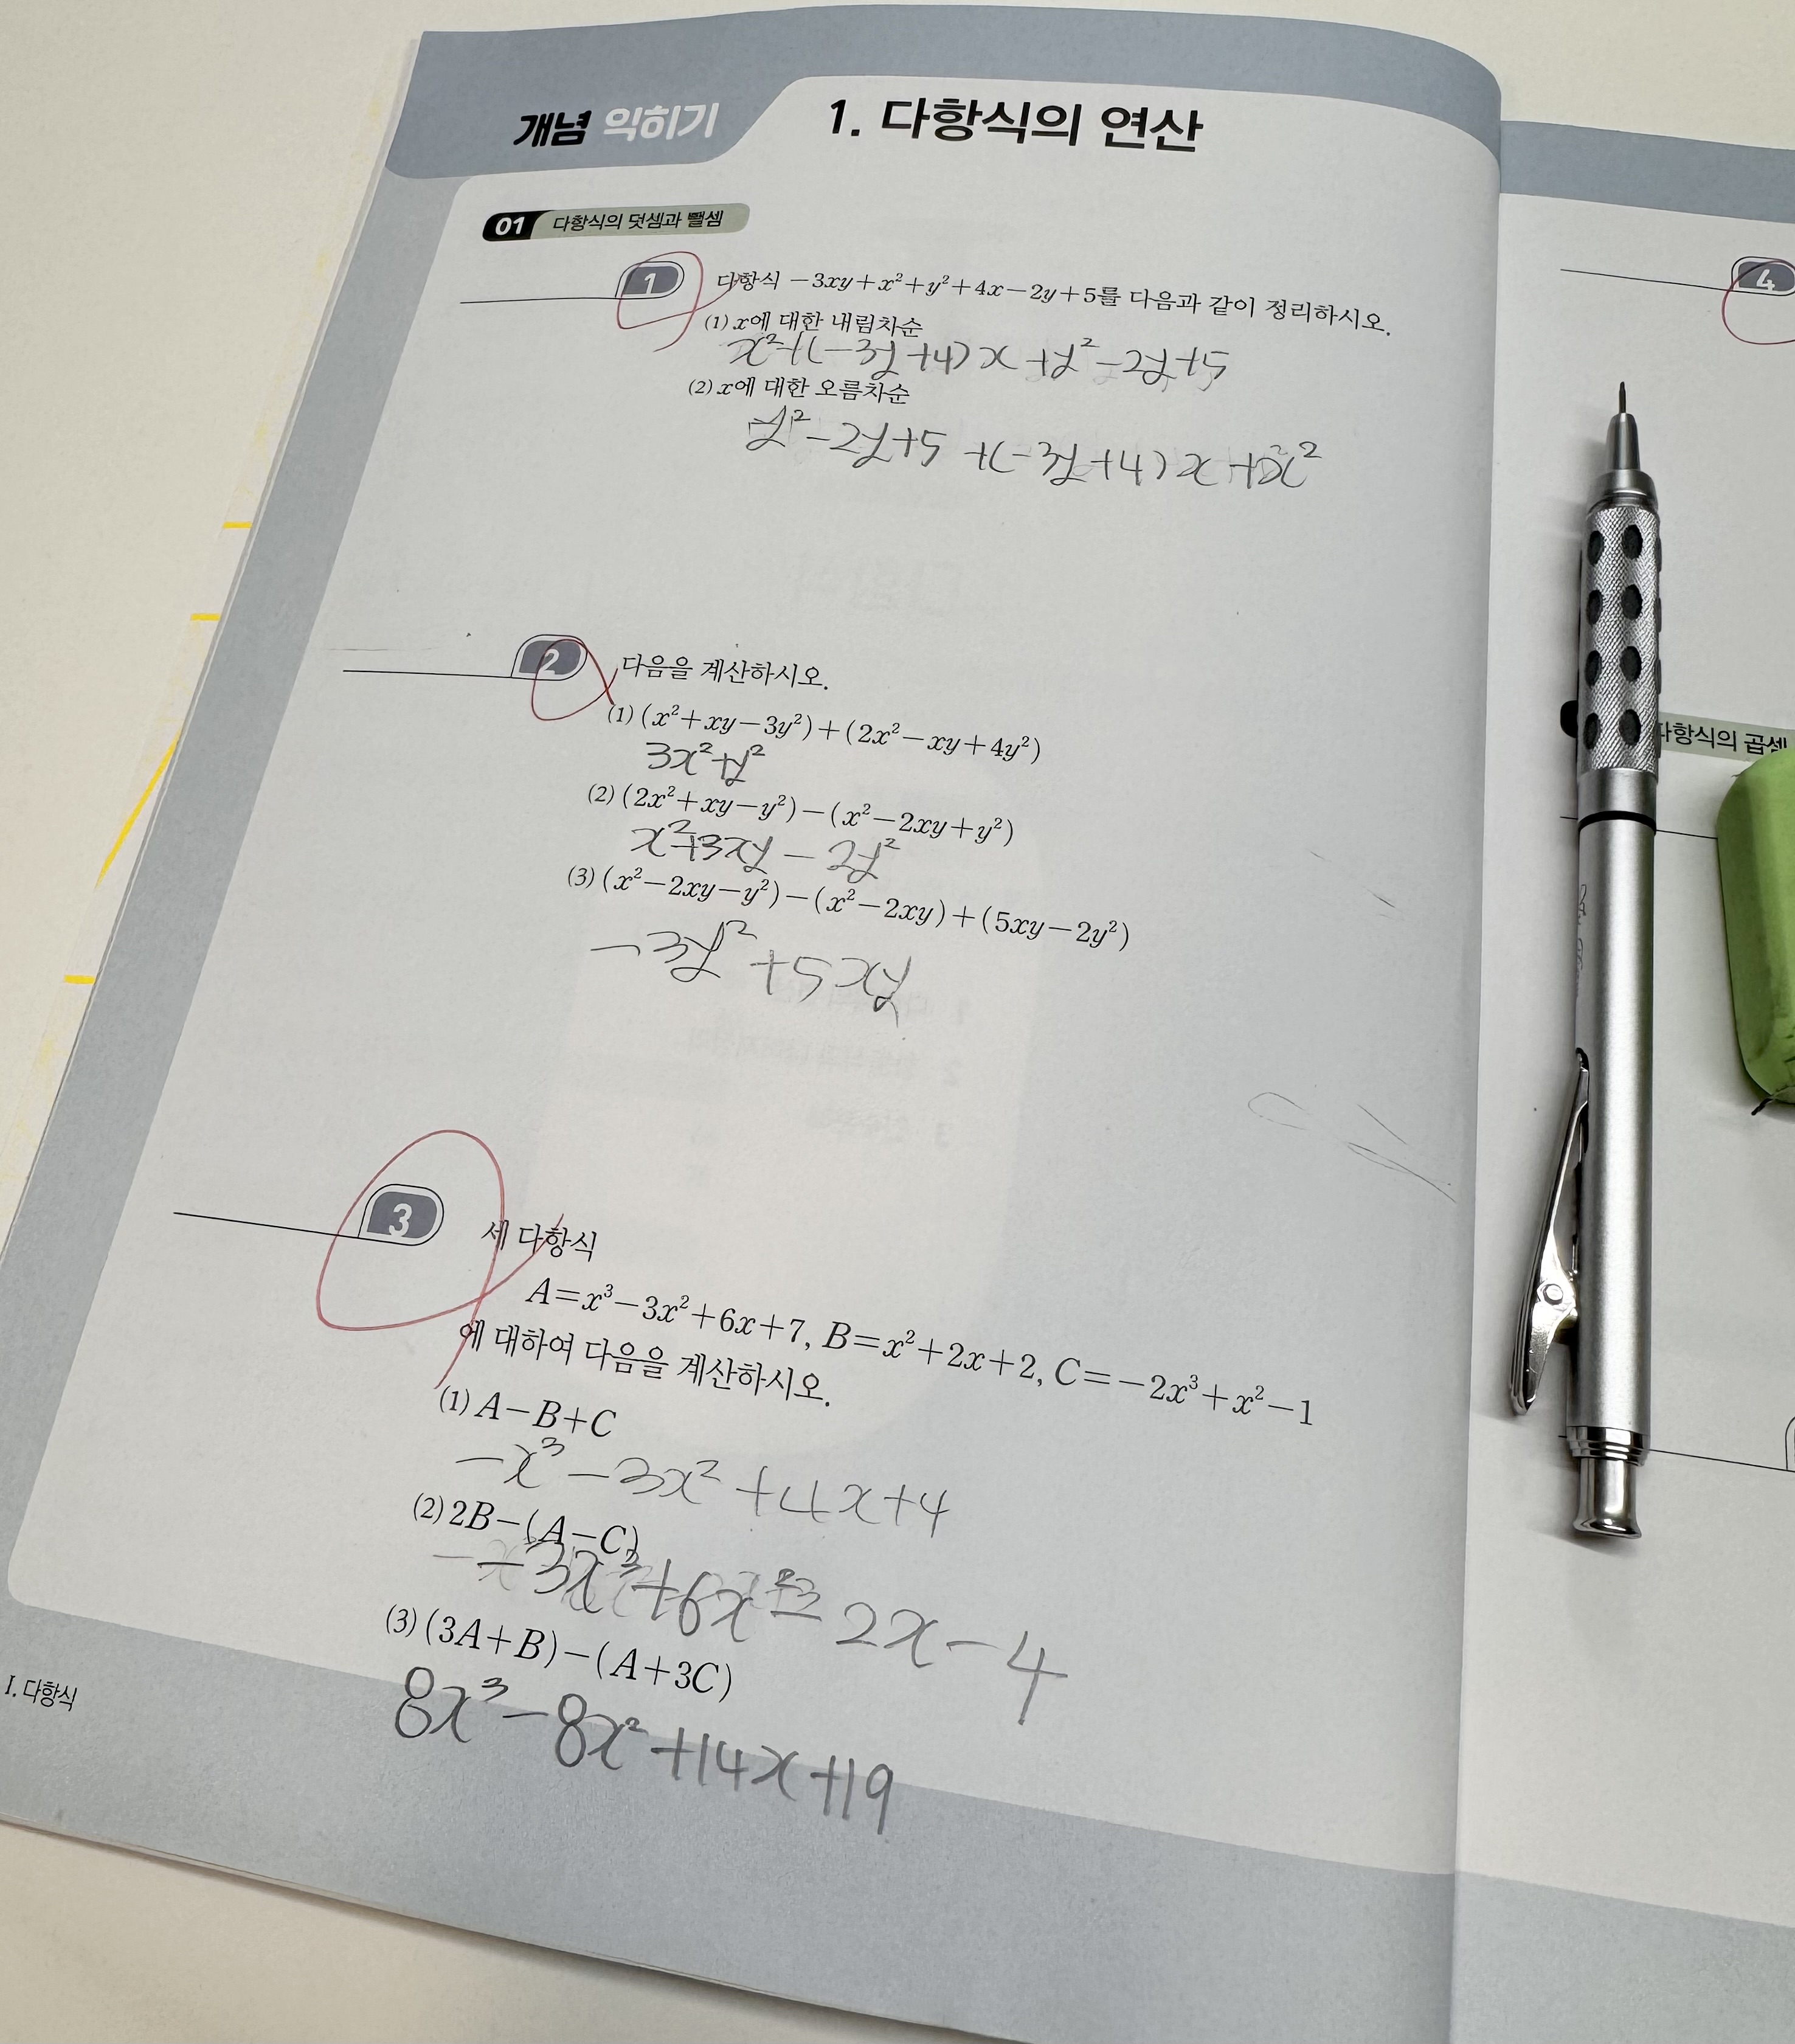 개념 익히기
1. 다항식의 연산
01 다항식의 덧셈과 뺄셈
1 다항식 −3xy+x²+y²+4x−2y+5를 다음과 같이 정리하시오.
(1) x에 대한 내림차순
x²+(−3y+4)x+y²−2y+5
(2) x에 대한 오름차순
y²−2y+5+(−3y+4)x+x²
2 다음을 계산하시오.
(1) (x²+xy−3y²)+(2x²−xy+4y²)
3x²+y²
(2) (2x²+xy−y²)−(x²−2xy+y²)
x²+3xy−2y²
(3) (x²−2xy−y²)−(x²−2xy)+(5xy−2y²)
−3y²+5xy
3 세 다항식
A=x³−3x²+6x+7, B=x²+2x+2, C=−2x³+x²−1
에 대하여 다음을 계산하시오.
(1) A−B+C
−x³−3x²+4x+4
(2) 2B−(A−C)
−3x³+6x²−2x−4
(3) (3A+B)−(A+3C)
8x³−8x²+14x+19
I. 다항식
4
다항식의 곱셈